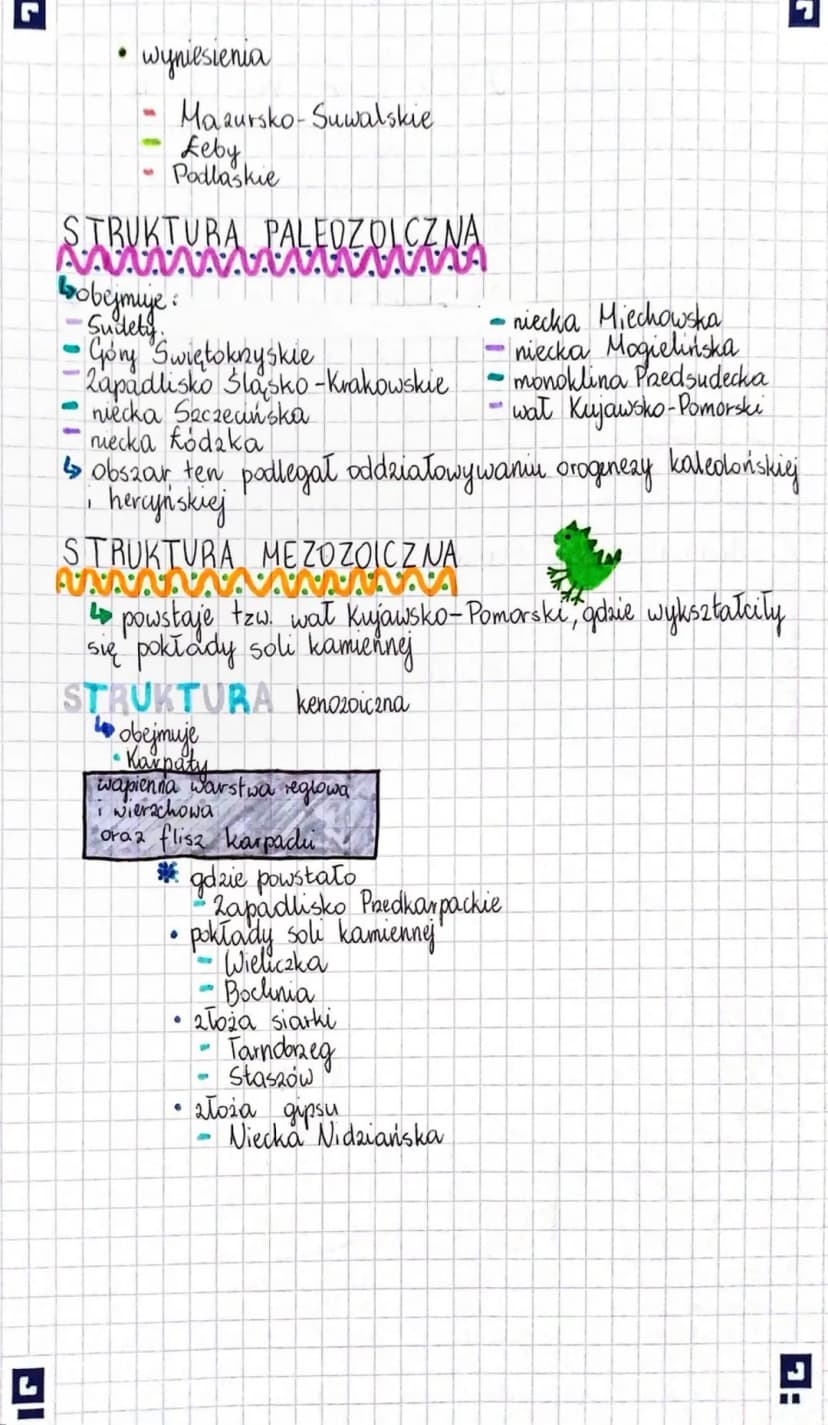 • wyniesienia
- Mazursko-Suwalskie
- Łeby
- Podlaskie
STRUKTURA PALEOZOICZNA
↳ obejmuje:
- Sudety.
- Góry Świętokrzyskie
- Zapadlisko Śląsko-Krakowskie
- niecka Szczecińska
- niecka Łódzka
- niecka Miechowska
- niecka Mogielińska
- monoklina Przedsudecka
- wał Kujawsko-Pomorski
↳ obszar ten podlegał oddziałowywaniu orogenezy kaledońskiej
i hercyńskiej
STRUKTURA MEZOZOICZNA
↳ powstaje tzw. wał Kujawsko-Pomorski, gdzie wykształciły
się pokłady soli kamiennej
STRUKTURA kenozoiczna
↳ obejmuje
• Karpaty
wapienna warstwa reglowa
i wierzchowa
oraz flisz karpacki
* gdzie powstało
- Zapadlisko Przedkarpackie
• pokłady soli kamiennej
- Wieliczka
- Bochnia
• złoża siarki
- Tarndorzeg
- Staszów
• złoża gipsu
- Niecka Nidziańska